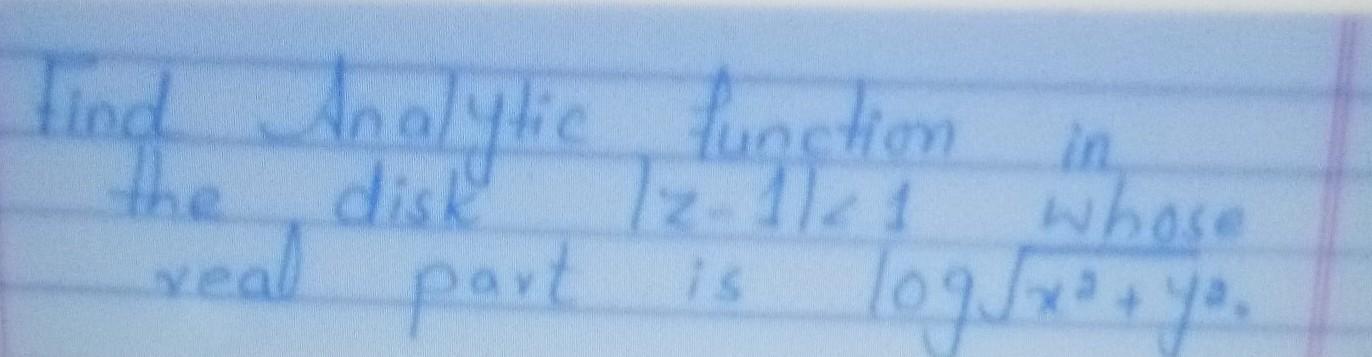 Find Analytic function in
the disk |z-1|<1 whose
real part is log√x²+y².